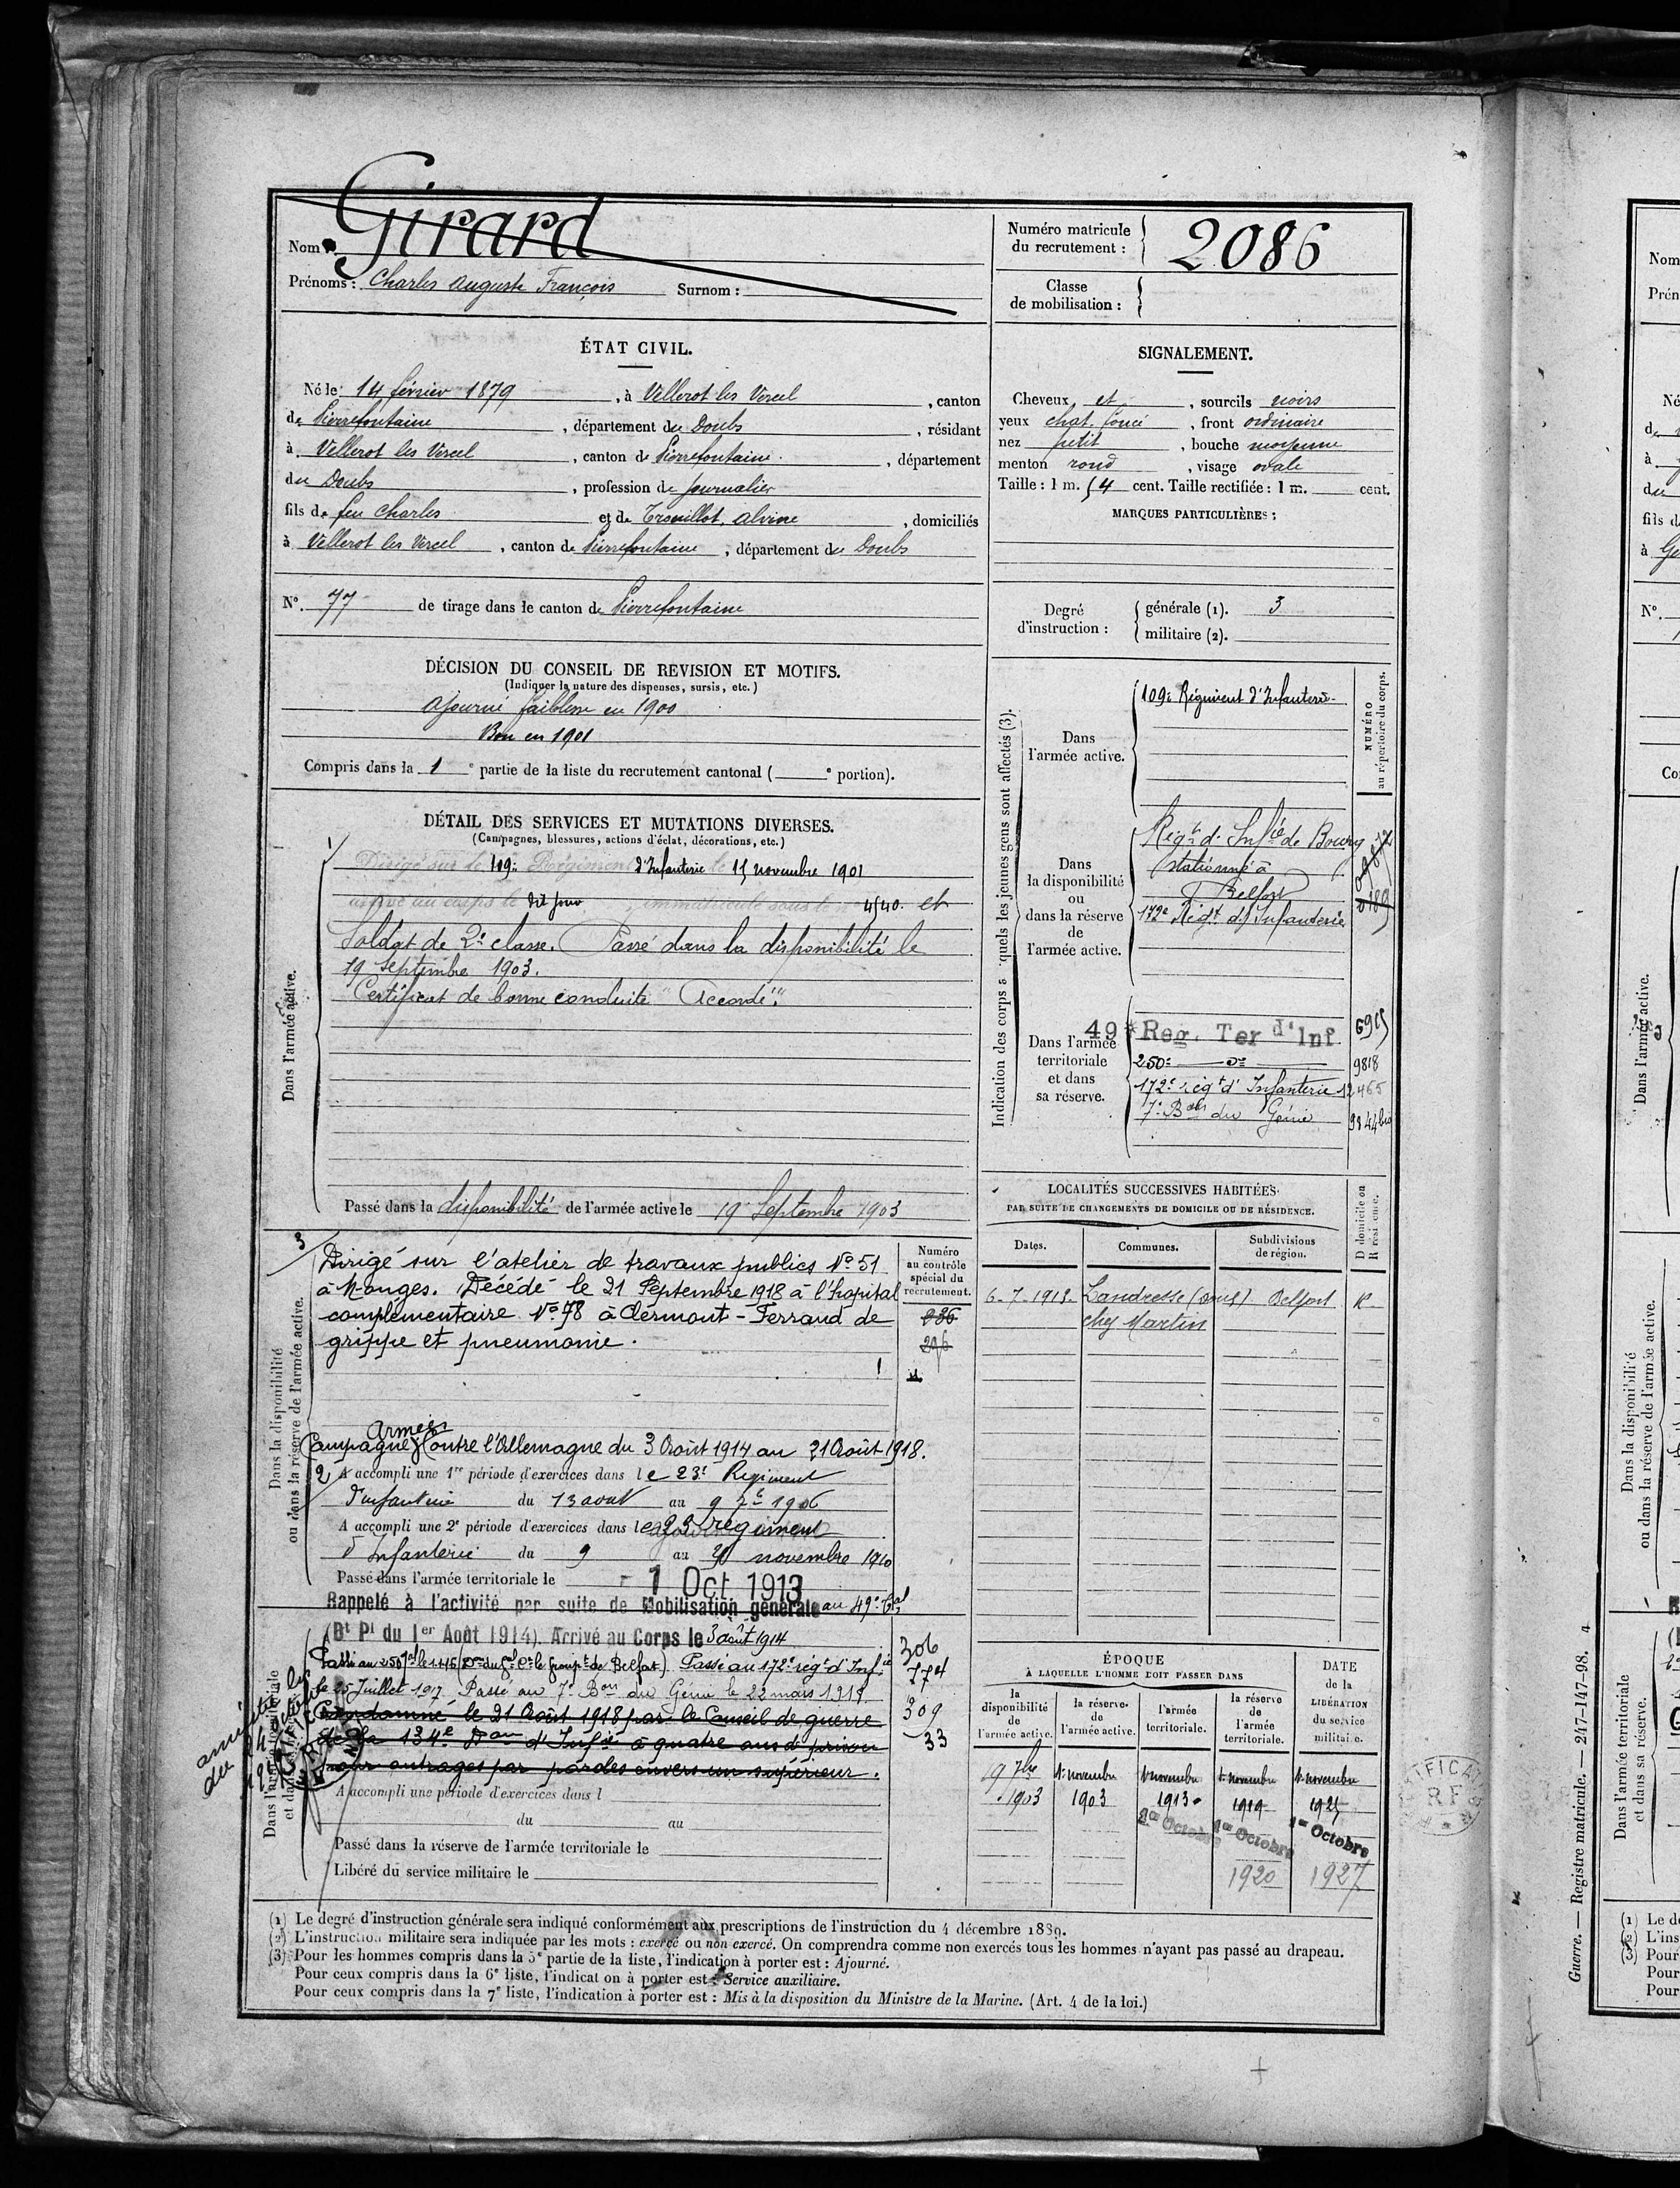 Nom : Girard
Prénoms : Charles Auguste François Surnom :
Numéro matricule du recrutement : 2086
Classe de mobilisation :
ÉTAT CIVIL.
Né le 14 février 1879, à Vellerot les Vercel, canton
de Pierrefontaine, département du Doubs, résidant
à Vellerot les Vercel, canton de Pierrefontaine, département
du Doubs, profession de journalier
fils de feu Charles et de Trouillot, Alvine, domiciliés
à Vellerot les Vercel, canton de Pierrefontaine, département du Doubs
N°. 77 de tirage dans le canton de Pierrefontaine
SIGNALEMENT.
Cheveux et, sourcils noirs
yeux chat. foncé, front ordinaire
nez petit, bouche moyenne
menton rond, visage ovale
Taille : 1 m. 54 cent. Taille rectifiée : 1 m. cent.
MARQUES PARTICULIÈRES :
Degré d'instruction : générale (1). 3
militaire (2).
DÉCISION DU CONSEIL DE REVISION ET MOTIFS.
(Indiquer la nature des dispenses, sursis, etc.)
Ajourné faiblesse en 1900
Bon en 1901
Compris dans la 1e partie de la liste du recrutement cantonal ( e portion).
DÉTAIL DES SERVICES ET MUTATIONS DIVERSES.
(Campagnes, blessures, actions d'éclat, décorations, etc.)
Dans l'armée active.
1
Dirigé sur le 109e Régiment d'Infanterie le 15 novembre 1901
arrivé au corps le dit jour, immatriculé sous le n° 4540. et
Soldat de 2e classe. Passé dans la disponibilité le
19 Septembre 1903.
Certificat de bonne conduite "Accordé".
Passé dans la disponibilité de l'armée active le 19 Septembre 1903
Indication des corps auxquels les jeunes gens sont affectés (3).
NUMÉRO au répertoire du corps.
Dans l'armée active.
109e Régiment d'Infanterie
Dans la disponibilité ou dans la réserve de l'armée active.
Régt d'Infie de Bourg
stationné à
Belfort
172e Régt d'Infanterie
Dans l'armée territoriale et dans sa réserve.
49e Reg. Ter d'Inf 6915
250e do 9818
172e régt d'Infanterie 12465
7e Bon du Génie 9844bis
LOCALITÉS SUCCESSIVES HABITÉES
PAR SUITE DE CHANGEMENTS DE DOMICILE OU DE RÉSIDENCE.
Dates. Communes. Subdivisions de région. D domicile ou R résidence.
6-7-1913. Landresse (Doubs) Belfort R
chez Martin
Dans la disponibilité ou dans la réserve de l'armée active.
Numéro au contrôle spécial du recrutement.
3
Dirigé sur l'atelier de travaux publics No 51
à Monges. Décédé le 21 Septembre 1918 à l'hopital
complémentaire No 78 à Clermont-Ferrand de
grippe et pneumonie.
836
296
Armées
Campagne Contre l'Allemagne du 3 Août 1914 au 21 Août 1918.
2 A accompli une 1re période d'exercices dans le 23e Régiment
d'infanterie du 13 août au 9 7bre 1906
A accompli une 2e période d'exercices dans le 23 régiment
d'Infanterie du 9 au novembre 1910
Passé dans l'armée territoriale le 1 Oct 1913
Rappelé à l'activité par suite de Mobilisation générale au 49e tal
(Dt Pl du 1er Août 1914). Arrivé au Corps le 3 août 1914
Passé au 172e régt d'Infie
le 25 Juillet 1917. Passé au 7e Bon du Génie le 22 mars 1918
Condamné le 21 Août 1918 par le Conseil de guerre
de la 134e Don d'Infie à quatre ans de prison
pour outrages par paroles envers un supérieur.
306
774
309
33
Dans l'armée territoriale et dans sa réserve.
A accompli une période d'exercices dans l
du au
Passé dans la réserve de l'armée territoriale le
Libéré du service militaire le
ÉPOQUE
À LAQUELLE L'HOMME DOIT PASSER DANS
la disponibilité de l'armée active. la réserve de l'armée active. l'armée territoriale. la réserve de l'armée territoriale.
DATE de la LIBÉRATION du service militaire.
19 7bre 1903
1er novembre 1903
1er novembre 1913
1er novembre 1919
1er novembre 1925
1er Octobre
1er Octobre 1920
1er Octobre 1927
(1) Le degré d'instruction générale sera indiqué conformément aux prescriptions de l'instruction du 4 décembre 1889.
(2) L'instruction militaire sera indiquée par les mots : exercé ou non exercé. On comprendra comme non exercés tous les hommes n'ayant pas passé au drapeau.
(3) Pour les hommes compris dans la 5e partie de la liste, l'indication à porter est : Ajourné.
Pour ceux compris dans la 6e liste, l'indication à porter est : Service auxiliaire.
Pour ceux compris dans la 7e liste, l'indication à porter est : Mis à la disposition du Ministre de la Marine. (Art. 4 de la loi.)
RF
Guerre. — Registre matricule. — 247-147-98. 4